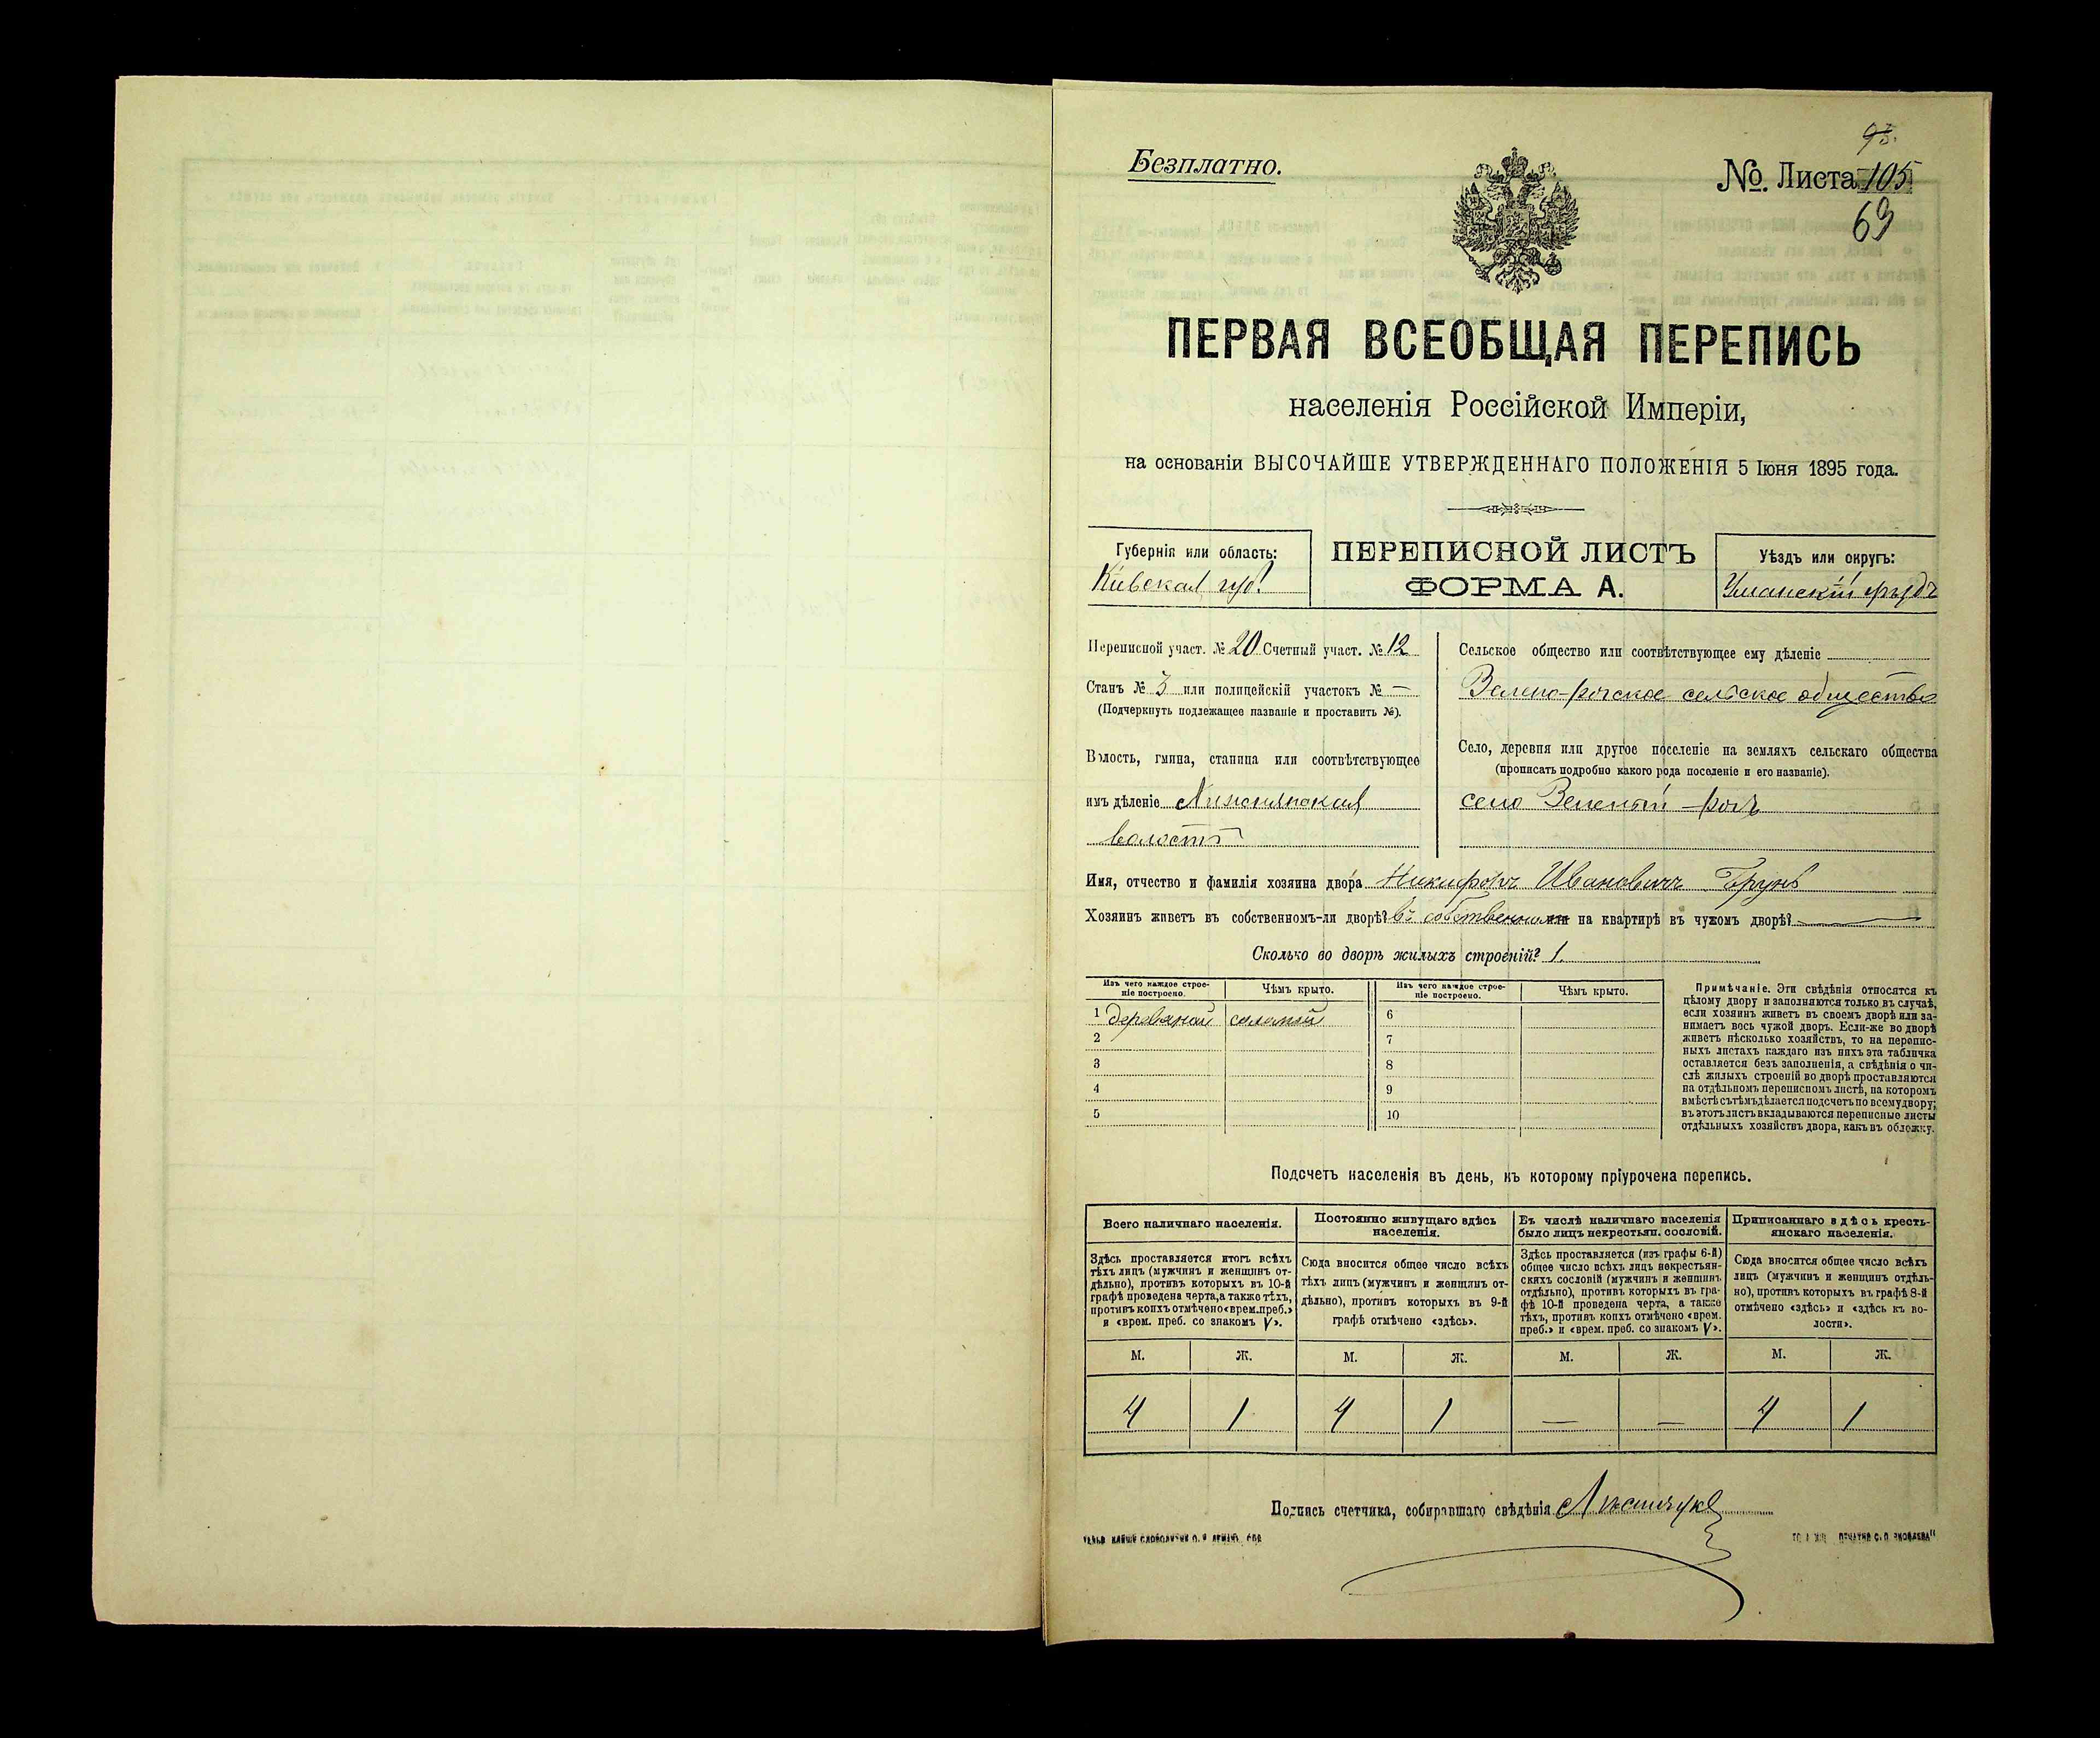 95.
Безплатно.
№. Листа 105
69
ПЕРВАЯ ВСЕОБЩАЯ ПЕРЕПИСЬ
населенія Россійской Имперіи,
на основаніи ВЫСОЧАЙШЕ УТВЕРЖДЕННАГО ПОЛОЖЕНІЯ 5 Іюня 1895 года.
Губернія или область:
Кіевская губ.
ПЕРЕПИСНОЙ ЛИСТЪ
ФОРМА А.
Уѣздъ или округъ:
Уманскій уѣздъ
Переписной участ. № 20 Счетный участ. № 12
Станъ № 3 или полицейскій участокъ № —
(Подчеркнуть подлежащее названіе и проставить №).
Волость, гмина, станица или соотвѣтствующее
имъ дѣленіе
волость
Сельское общество или соотвѣтствующее ему дѣленіе
Зелено-рогское сельское общество
Село, деревня или другое поселеніе на земляхъ сельскаго общества
(прописать подробно какого рода поселеніе и его названіе).
село Зеленый-рогъ
Имя, отчество и фамилія хозяина двора Никифоръ Ивановичъ
Хозяинъ живетъ въ собственномъ-ли дворѣ? въ собственномъ или на квартирѣ въ чужомъ дворѣ? —
Сколько во дворѣ жилыхъ строеній? 1.
Изъ чего каждое строе-
ніе построено.
Чѣмъ крыто.
Изъ чего каждое строе-
ніе построено.
Чѣмъ крыто.
1 деревяной соломой 6
2 7
3 8
4 9
5 10
Примѣчаніе. Эти свѣдѣнія относятся къ
цѣлому двору и заполняются только въ случаѣ,
если хозяинъ живетъ въ своемъ дворѣ или за-
нимаетъ весь чужой дворъ. Если-же во дворѣ
живетъ нѣсколько хозяйствъ, то на перепис-
ныхъ листахъ каждаго изъ нихъ эта табличка
оставляется безъ заполненія, а свѣдѣнія о чи-
слѣ жилыхъ строеній во дворѣ проставляются
на отдѣльномъ переписномъ листѣ, на которомъ
вмѣстѣ съ тѣмъ дѣлается подсчетъ по всему двору;
въ этотъ листъ вкладываются переписные листы
отдѣльныхъ хозяйствъ двора, какъ въ обложку.
Подсчетъ населенія въ день, къ которому пріурочена перепись.
Всего наличнаго населенія.
Здѣсь проставляется итогъ всѣхъ
тѣхъ лицъ (мужчинъ и женщинъ от-
дѣльно), противъ которыхъ въ 10-й
графѣ проведена черта, а также тѣхъ,
противъ коихъ отмѣчено «врем. преб.»
и «врем. преб. со знакомъ V».
Постоянно живущаго здѣсь
населенія.
Сюда вносится общее число всѣхъ
тѣхъ лицъ (мужчинъ и женщинъ от-
дѣльно), противъ которыхъ въ 9-й
графѣ отмѣчено «здѣсь».
Въ числѣ наличнаго населенія
было лицъ некрестьян. сословій.
Здѣсь проставляется (изъ графы 6-й)
общее число всѣхъ лицъ некрестьян-
скихъ сословій (мужчинъ и женщинъ
отдѣльно), противъ которыхъ въ гра-
фѣ 10-й проведена черта, а также
тѣхъ, противъ коихъ отмѣчено «врем.
преб.» и «врем. преб. со знакомъ V».
Приписаннаго здѣсь кресть-
янскаго населенія.
Сюда вносится общее число всѣхъ
лицъ (мужчинъ и женщинъ отдѣль-
но), противъ которыхъ въ графѣ 8-й
отмѣчено «здѣсь» и «здѣсь къ во-
лости».
М. Ж. М. Ж. М. Ж. М. Ж.
4 1 4 1 — — 4 1
Подпись счетчика, собиравшаго свѣдѣнія